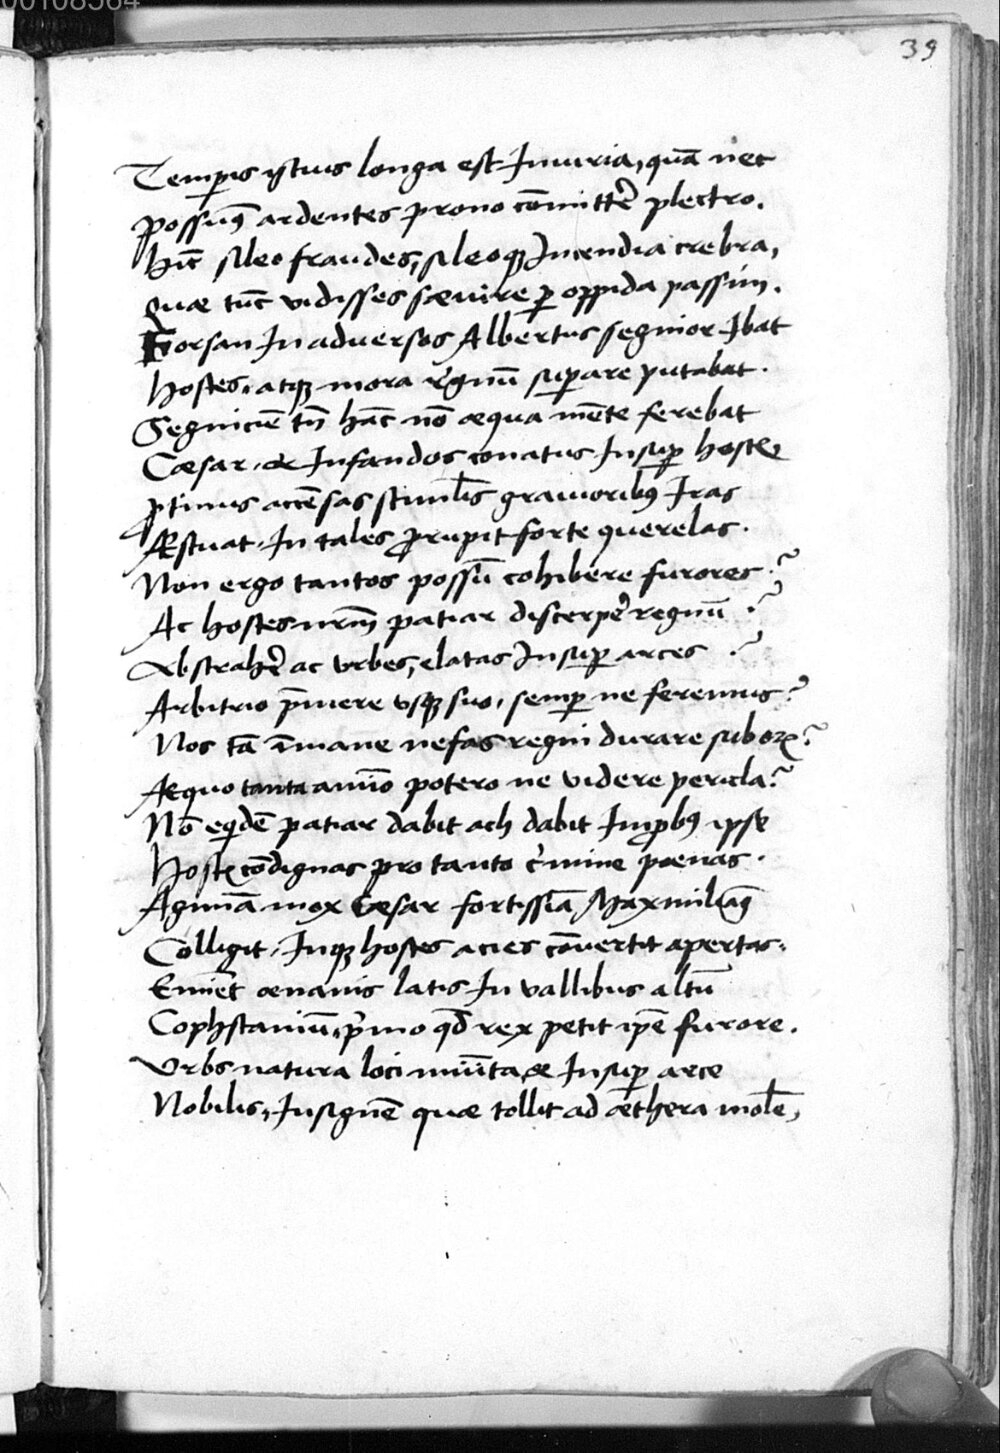 00108564
39
Temp̱is istius longa est Iniuria, quā nec
possuꝰ ardentes prono cōmitter̄ plectro.
Hīc sileo fraudes, sileoqꝫ Incendia crebra,
Quae tūc vidisses saeuire ꝑ oppida passim.
Forsan In aduersos Albertus segnior Ibat
Hostes, atqꝫ mora regnū suꝑare putabat.
Segniciē tn̄ hāc nō aequa mēte ferebat
Caesar, & Infandos conatus Insuꝑ hostꝭ
ꝓtinus accēsas stimul̄is grauioribꝰ Iras
Aestuat. In tales ꝓrupit forte querelas.
Non ergo tantos possū cohibere furores?
Ac hostes nr̄m patiar discerper̄ regnū?
Abstraher̄ ac vrbes, elatas Insuꝑ arces?
Arbitrio p̄mere vsqꝫ suo, semꝑ ne feremus?
Nos tā īmane nefas regni durare sub orꝭ?
Aequo tanta animo potero ne videre pericla?
Nō eqidē patiar dabit ach dabit Improbꝰ ipse
Hostꝭ cōdignas pro tanto crimine poenas.
Agmīa mox Caesar fortissīa Maxmilīaꝰ
Colligit, Inqꝫ hostes acies cōuertit apertas.
Eminēt oenanis latis In vallibus altū
Cophstanium, primo qd̄ rex petit ipē furore.
Vrbs natura loci munīta & Insuꝑ arce
Nobilis, Insignē quae tollit ad aethera mol̄e,